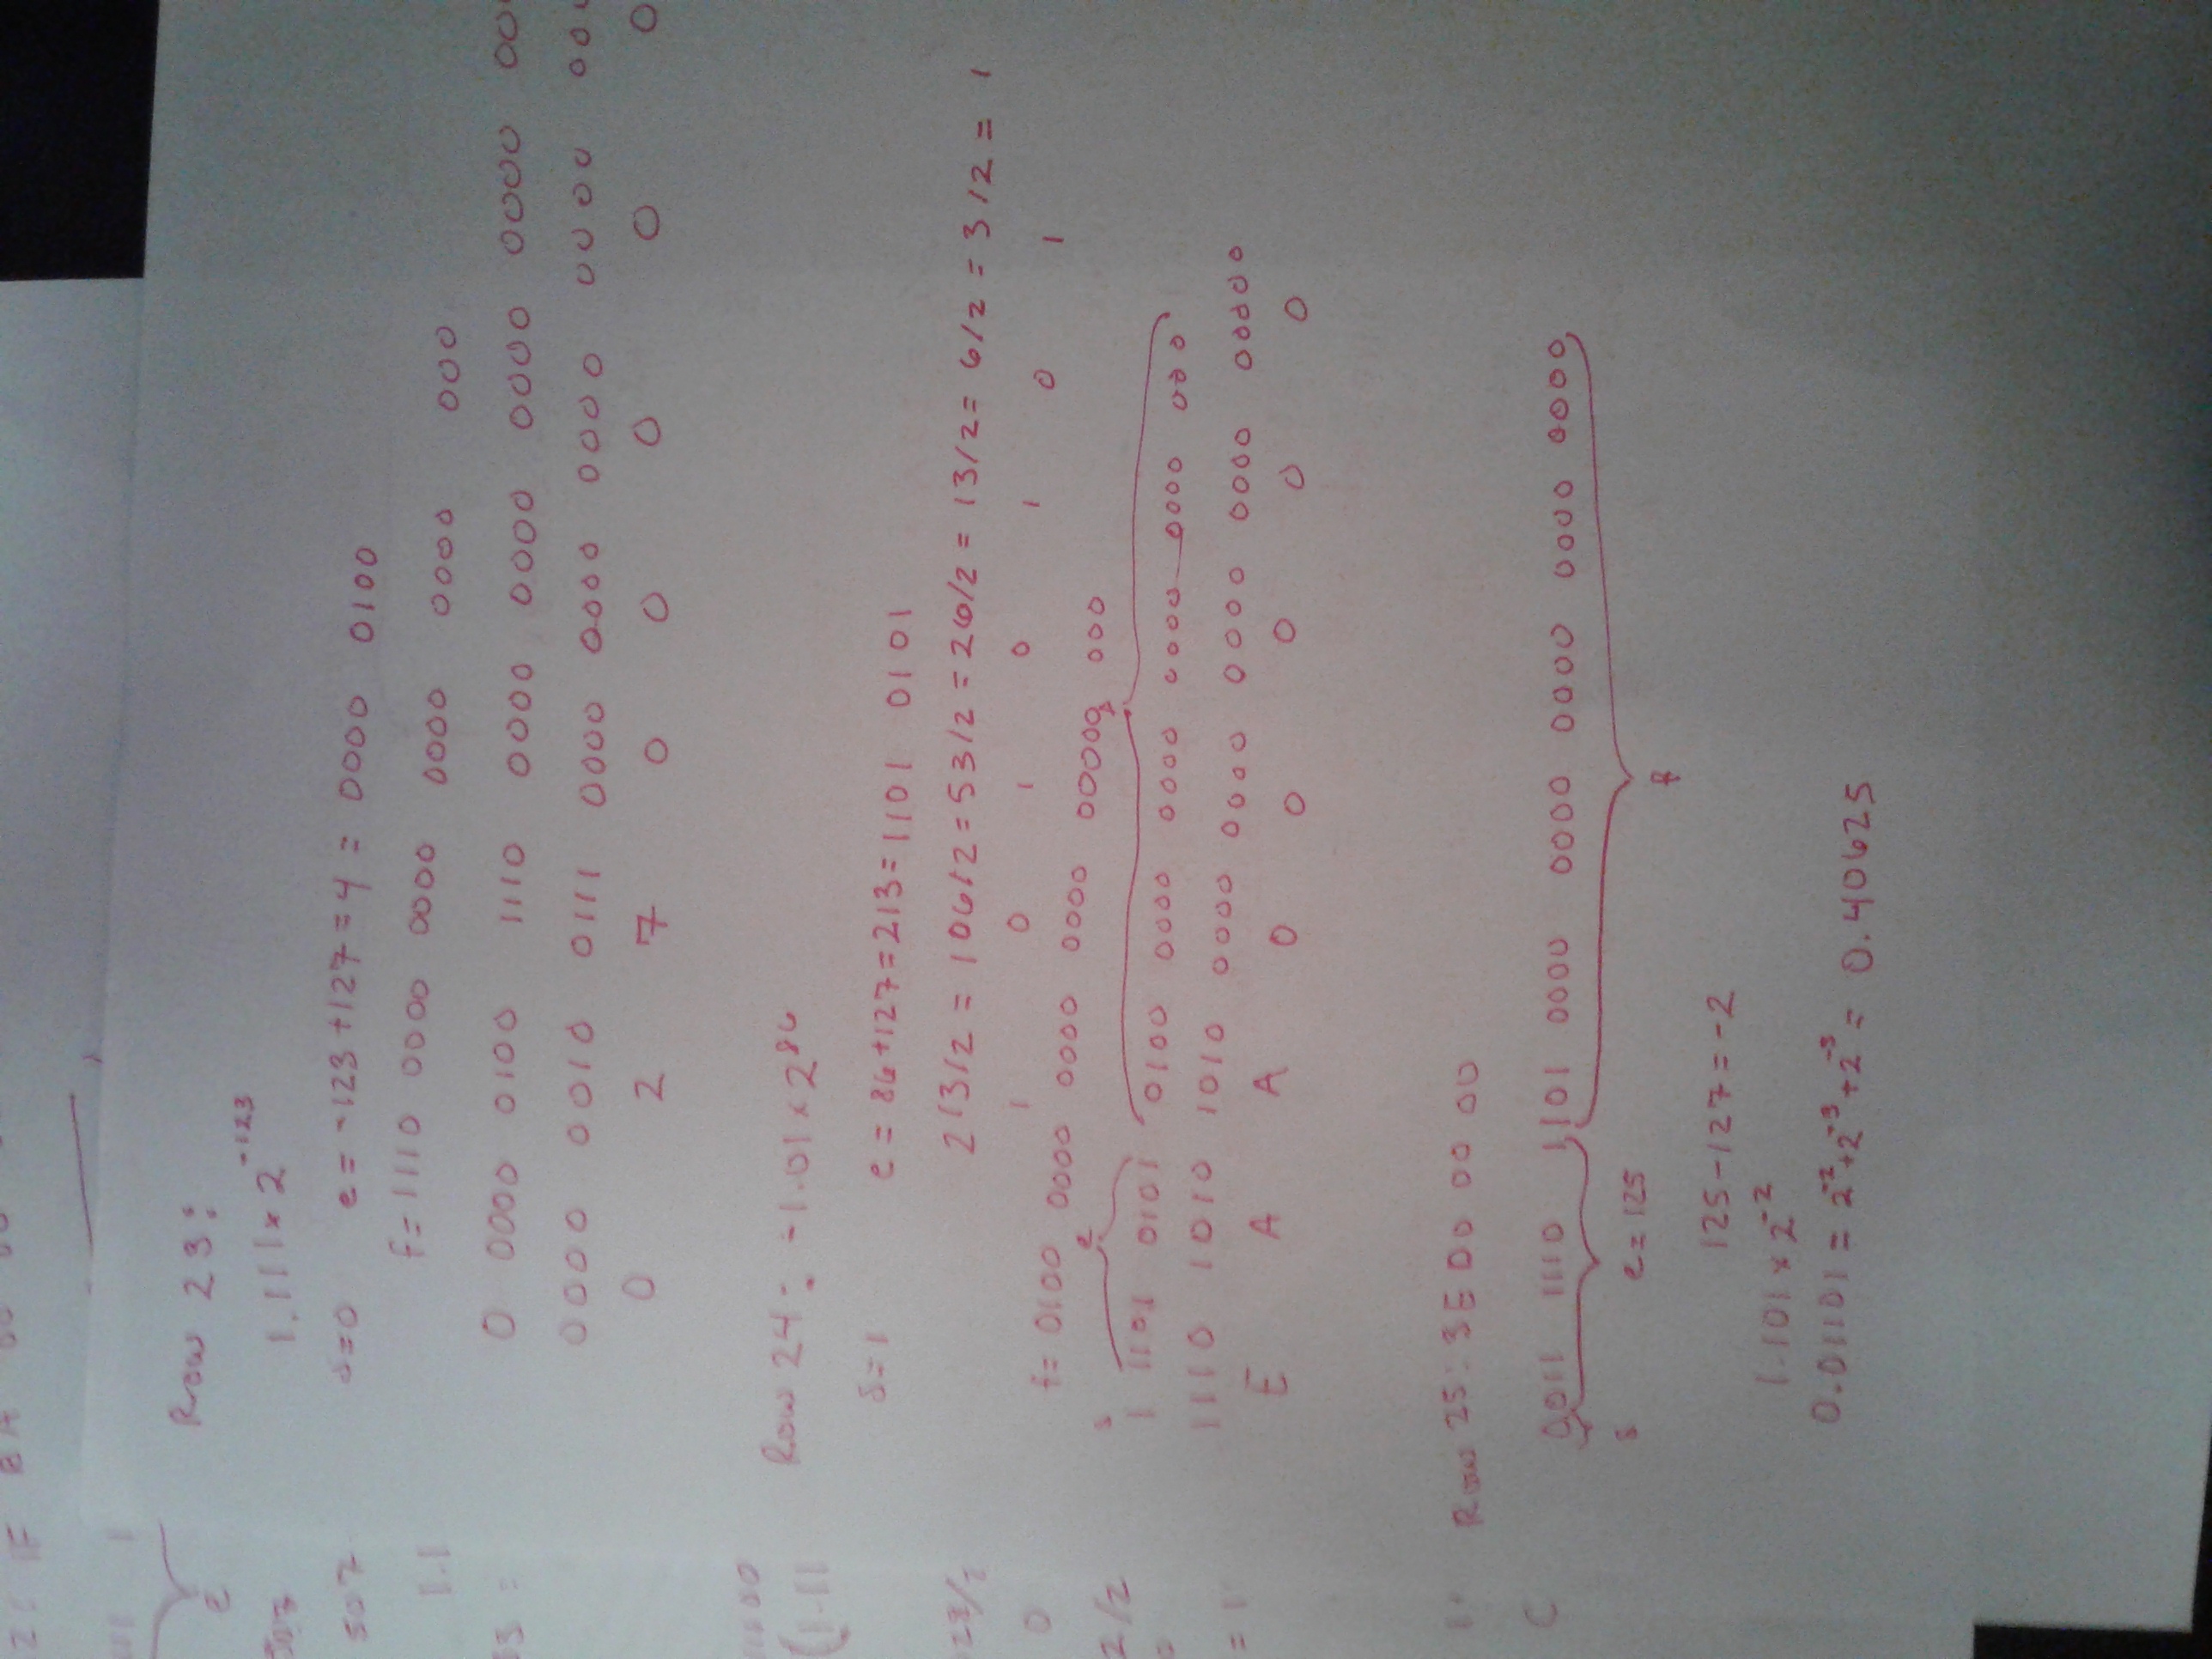 Row 23:
1.111 x 2^-123
s=0 e = -123 + 127 = 4 = 0000 0100
f = 1110 0000 0000 0000 0000 000
0 0000 0100 1110 0000 0000 0000 0000 00
0000 0010 0111 0000 0000 0000 0000 00
0 2 7 0 0 0 0 0
Row 24: -1.01 x 2^86
s=1 e = 86+127=213=1101 0101
213/2 = 106/2=53/2=26/2=13/2=6/2=3/2=1
1 0 1 0 1 0 1
f= 0100 0000 0000 0000 0000 000
s e
1 1101 0101 0100 0000 0000 0000 0000 000
1110 1010 1010 0000 0000 0000 0000 00000
E A A 0 0 0 0 0
Row 25: 3E D0 00 00
0011 1110 1101 0000 0000 0000 0000 0000
s e=125 f
125-127=-2
1.101 x 2^-2
0.01101 = 2^-2+2^-3+2^-5 = 0.40625
e
507
1.1
(1.11
0
2/2
= 1
C